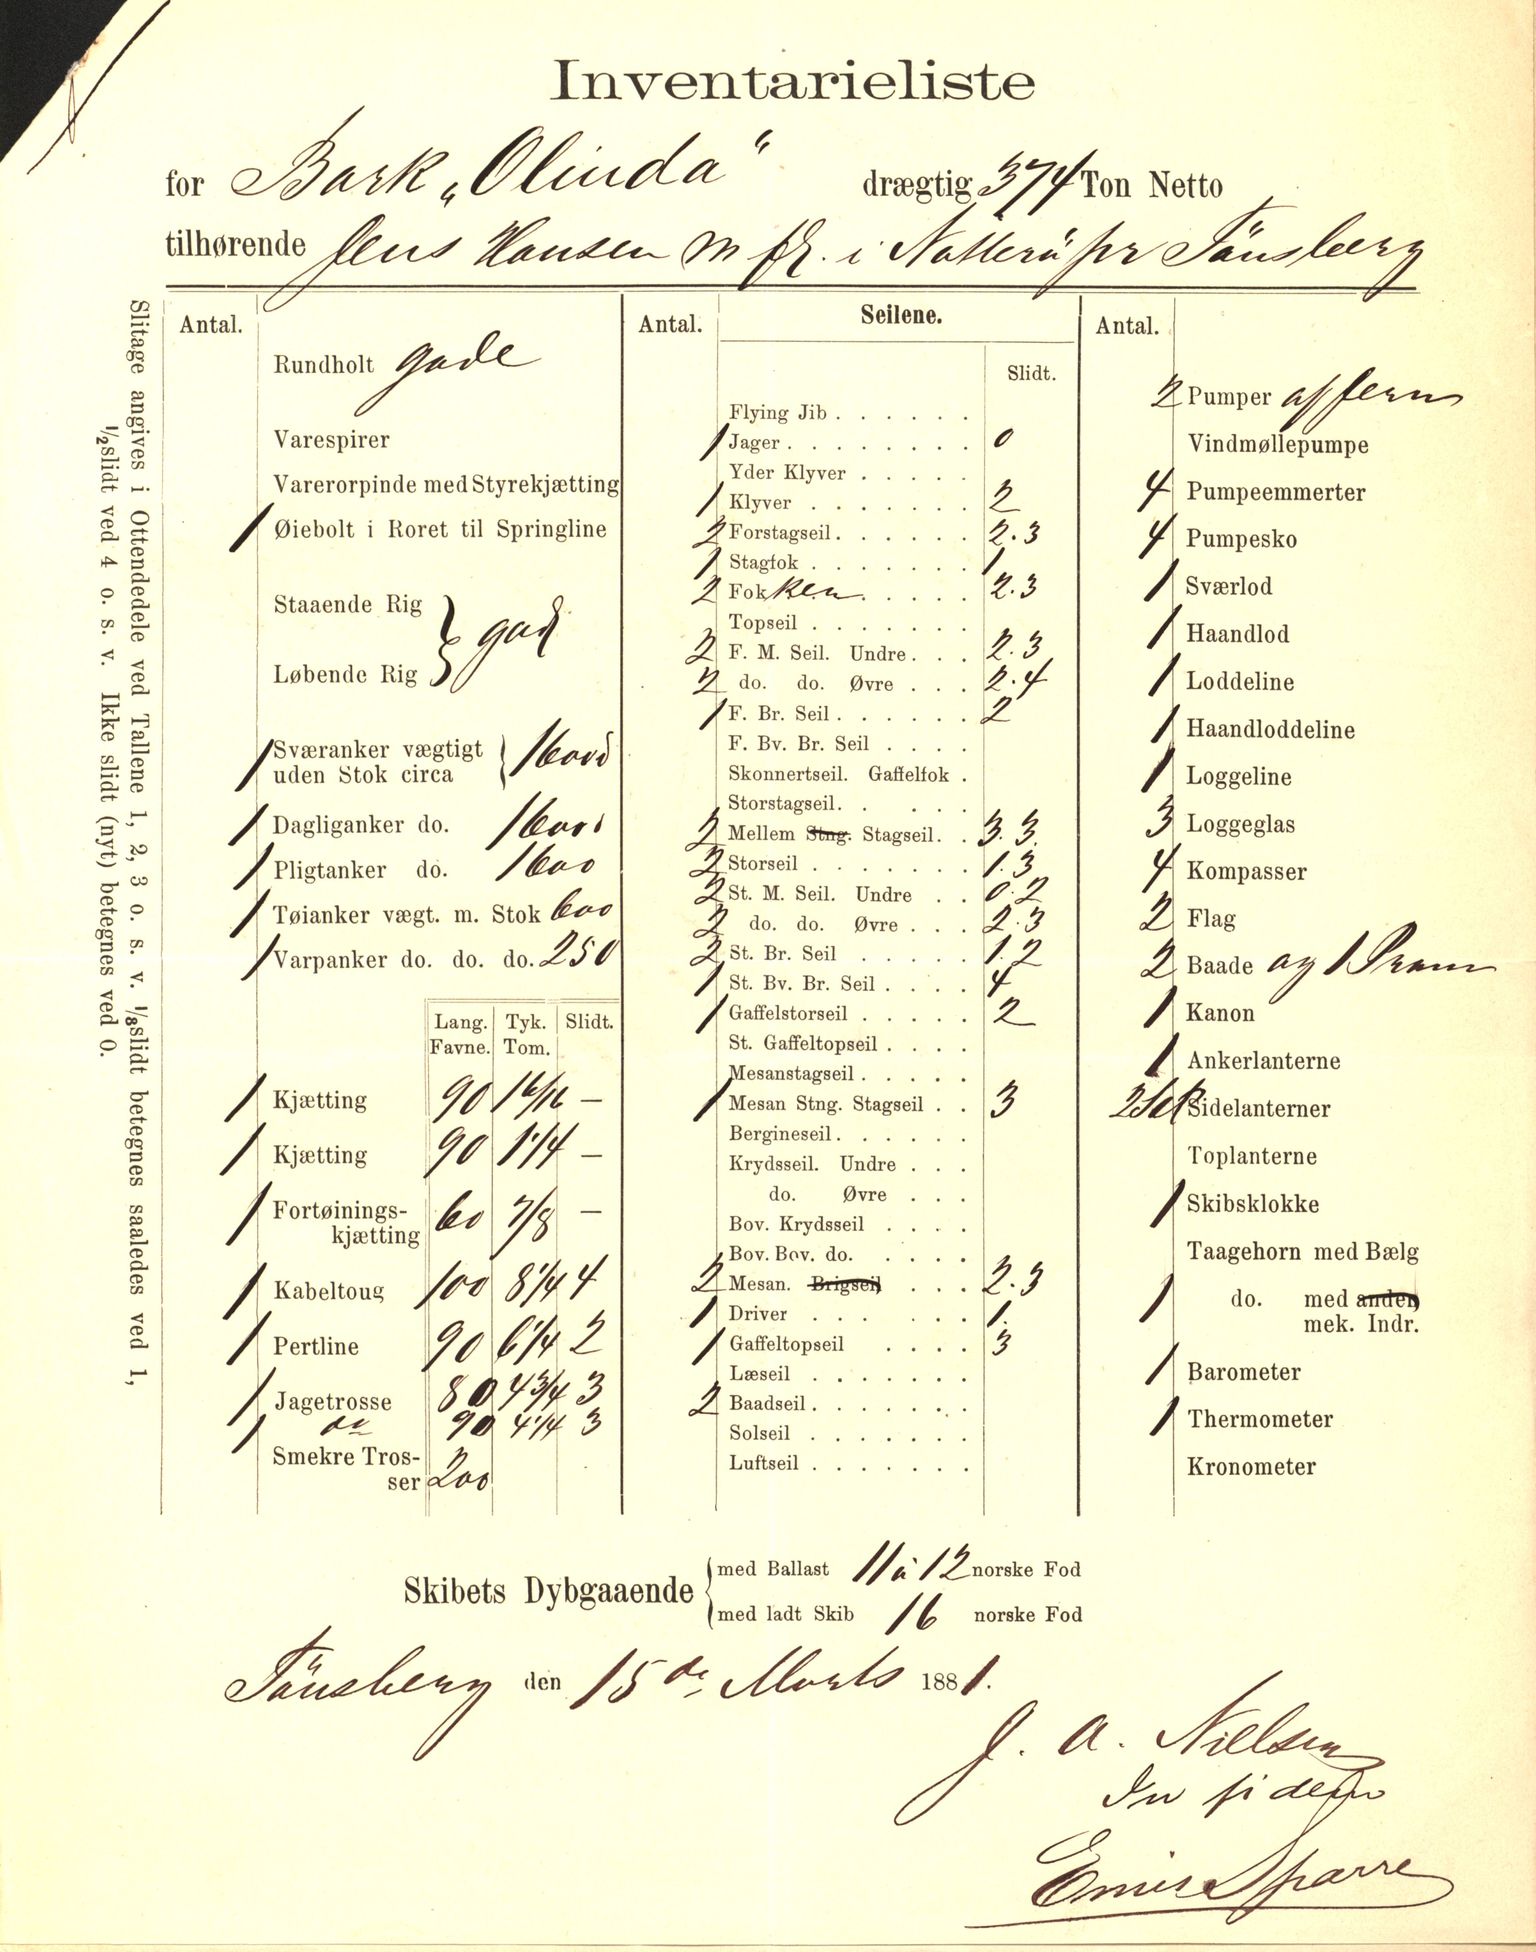 Inventarieliste
for Bark „Olinda" drægtig 374 Ton Netto
tilhørende Jens Hansen m fl. i Nötterö pr Tönsberg
Slitage angives i Ottendedele ved Tallene 1, 2, 3 o. s. v. 1/8 slidt betegnes saaledes ved 1,
1/2 slidt ved 4 o. s. v. Ikke slidt (nyt) betegnes ved 0.
Antal.
Rundholt gode
Varespirer
Varerorpinde med Styrekjætting
1 Øiebolt i Roret til Springline
Staaende Rig } god
Løbende Rig
1 Sværanker vægtigt
uden Stok circa } 1600
1 Dagliganker do. 1600
1 Pligtanker do. 1600
1 Tøianker vægt. m. Stok 600
1 Varpanker do. do. do. 250
Lang. Tyk. Slidt.
Favne. Tom.
1 Kjætting 90 1 6/16 —
1 Kjætting 90 1 1/4 —
1 Fortøinings-
kjætting 60 7/8 —
1 Kabeltoug 100 8 1/4 4
1 Pertline 90 6 1/4 2
1 Jagetrosse 80 4 3/4 3
1 do 90 4 1/4 3
Smekre Tros-
ser 200
Antal. Seilene.
Slidt.
Flying Jib . . . . . .
1 Jager . . . . . . . . 0
Yder Klyver . . . . .
1 Klyver . . . . . . . 2
2 Forstagseil . . . . . . 2.3
1 Stagfok . . . . . . . 1
2 Fokken . . . . . 2.3
Topseil . . . . . . .
2 F. M. Seil. Undre . . . 2.3
2 do. do. Øvre . . . 2.4
1 F. Br. Seil . . . . . . 2
F. Bv. Br. Seil . . . .
Skonnertseil. Gaffelfok .
Storstagseil . . . . .
2 Mellem Stng. Stagseil . . 3.3.
2 Storseil . . . . . . . 1.3
2 St. M. Seil. Undre . . 0.2
2 do. do. Øvre . . . 2.3
2 St. Br. Seil . . . . . 1.2
1 St. Bv. Br. Seil . . . . 4
1 Gaffelstorseil . . . . . 2
St. Gaffeltopseil . . . .
Mesanstagseil . . . . .
1 Mesan Stng. Stagseil . . 3
Bergineseil . . . . . .
Krydsseil. Undre . . .
do. Øvre . . .
Bov. Krydsseil . . . .
Bov. Bov. do. . . . .
2 Mesan. Brigseil . . . 2.3
1 Driver . . . . . . 1.
1 Gaffeltopseil . . . . 3
Læseil . . . . . . .
2 Baadseil . . . . . . .
Solseil . . . . . . .
Luftseil . . . . . . .
Antal.
2 Pumper af Jern
Vindmøllepumpe
4 Pumpeemmerter
4 Pumpesko
1 Sværlod
1 Haandlod
1 Loddeline
1 Haandloddeline
1 Loggeline
3 Loggeglas
4 Kompasser
2 Flag
2 Baade og 1 Pram
1 Kanon
1 Ankerlanterne
2 Sidelanterner
Toplanterne
1 Skibsklokke
Taagehorn med Bælg
1 do. med anden
mek. Indr.
1 Barometer
1 Thermometer
Kronometer
Skibets Dybgaaende { med Ballast 11 à 12 norske Fod
med ladt Skib 16 norske Fod
Tönsberg den 15de Marts 1881.
J. A. Nielsen
In fidem
Sparre